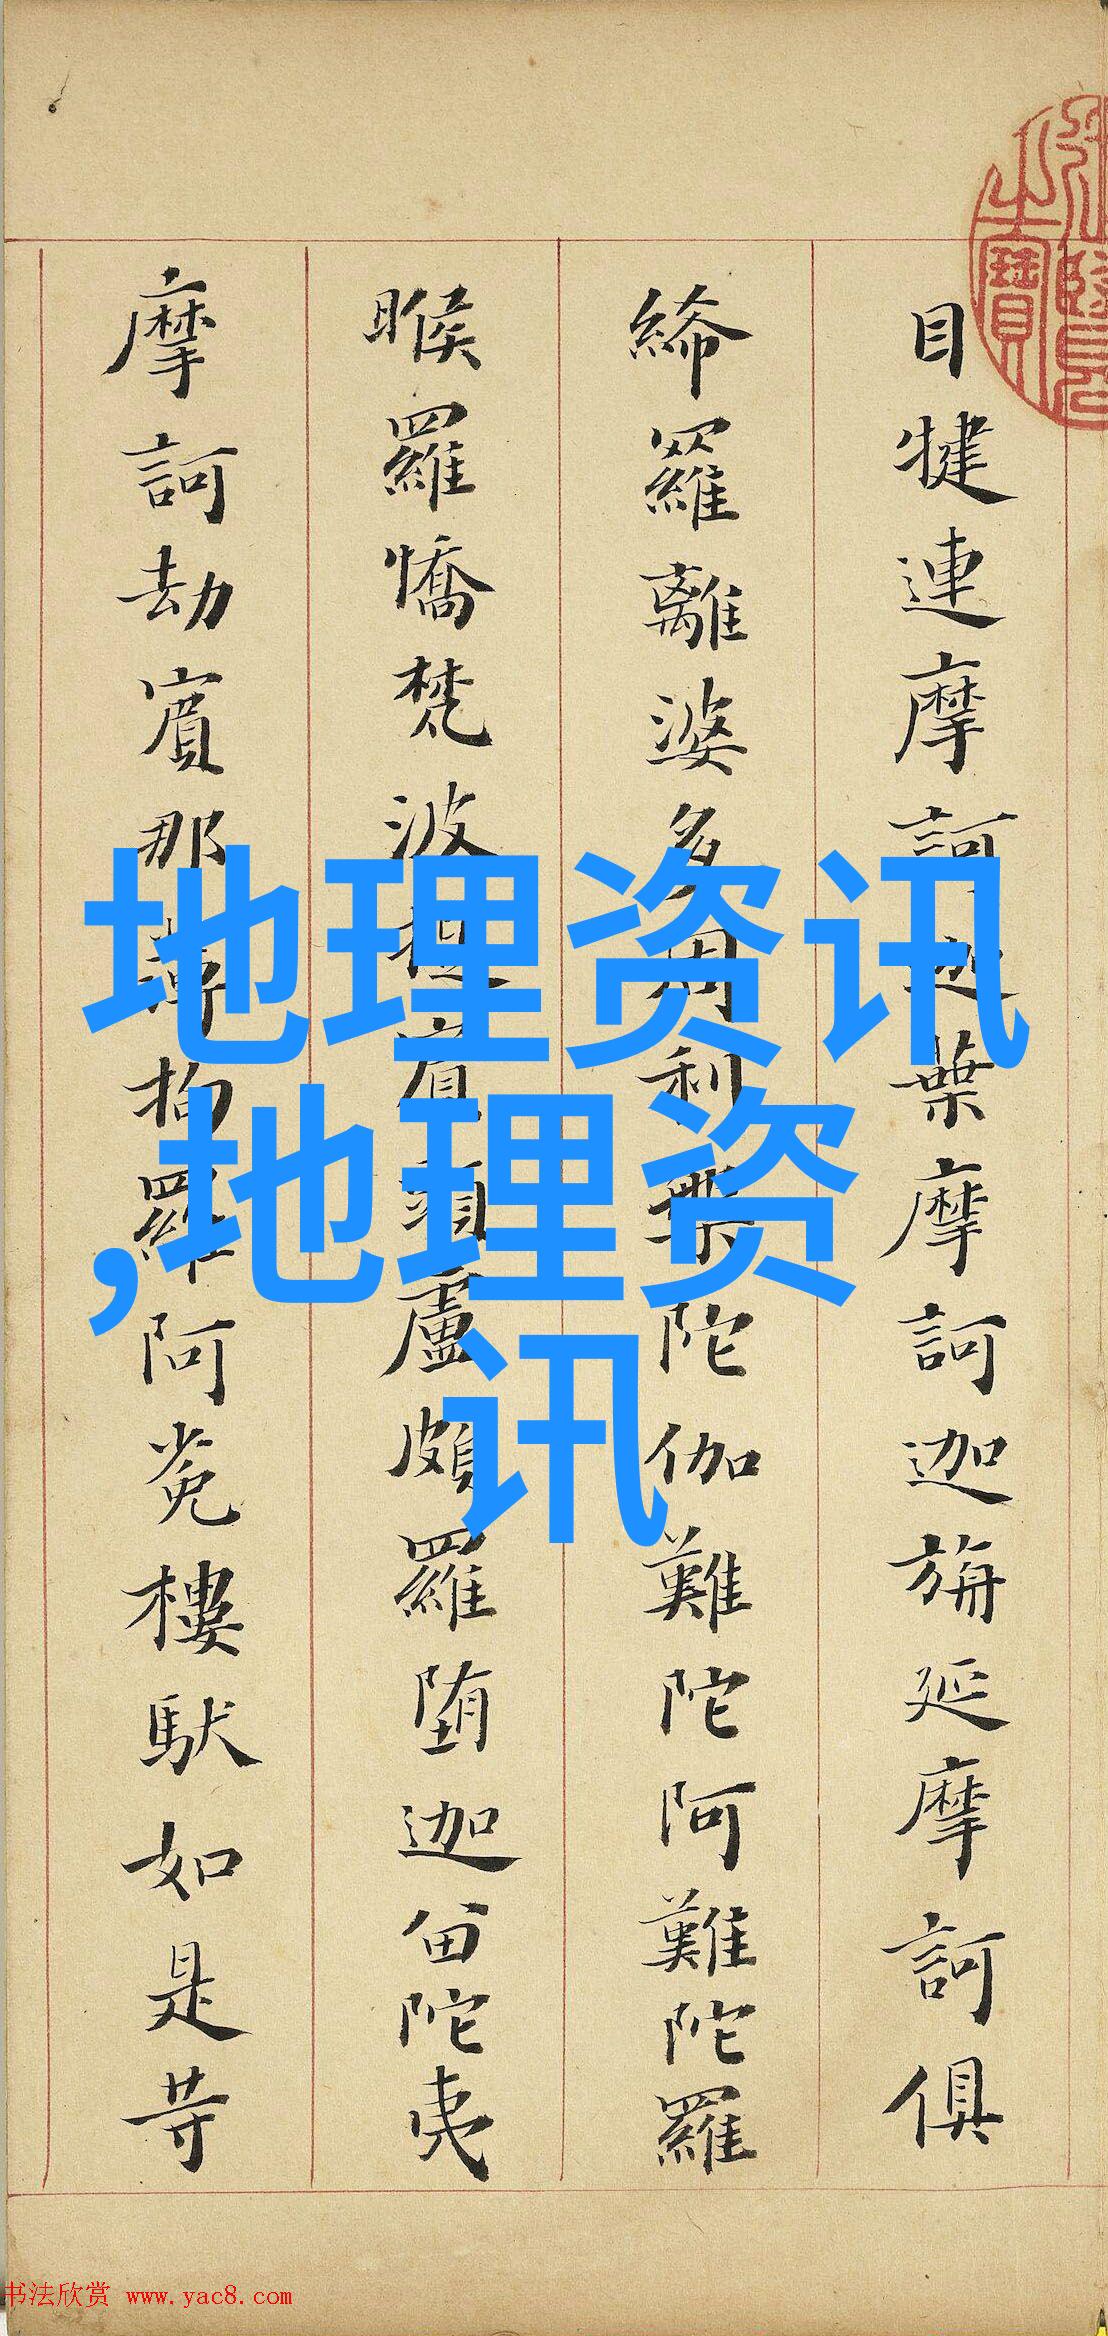 目犍連摩訶迦葉摩訶迦旃延摩訶俱
絺羅離婆多周利槃陀伽難陀阿難陀羅
睺羅憍梵波提賓頭盧頗羅堕迦留陀夷
摩訶劫賓那薄拘羅阿㝹樓馱如是等
地理资讯
,地理资
讯
之寶
书法欣赏 www.yac8.com